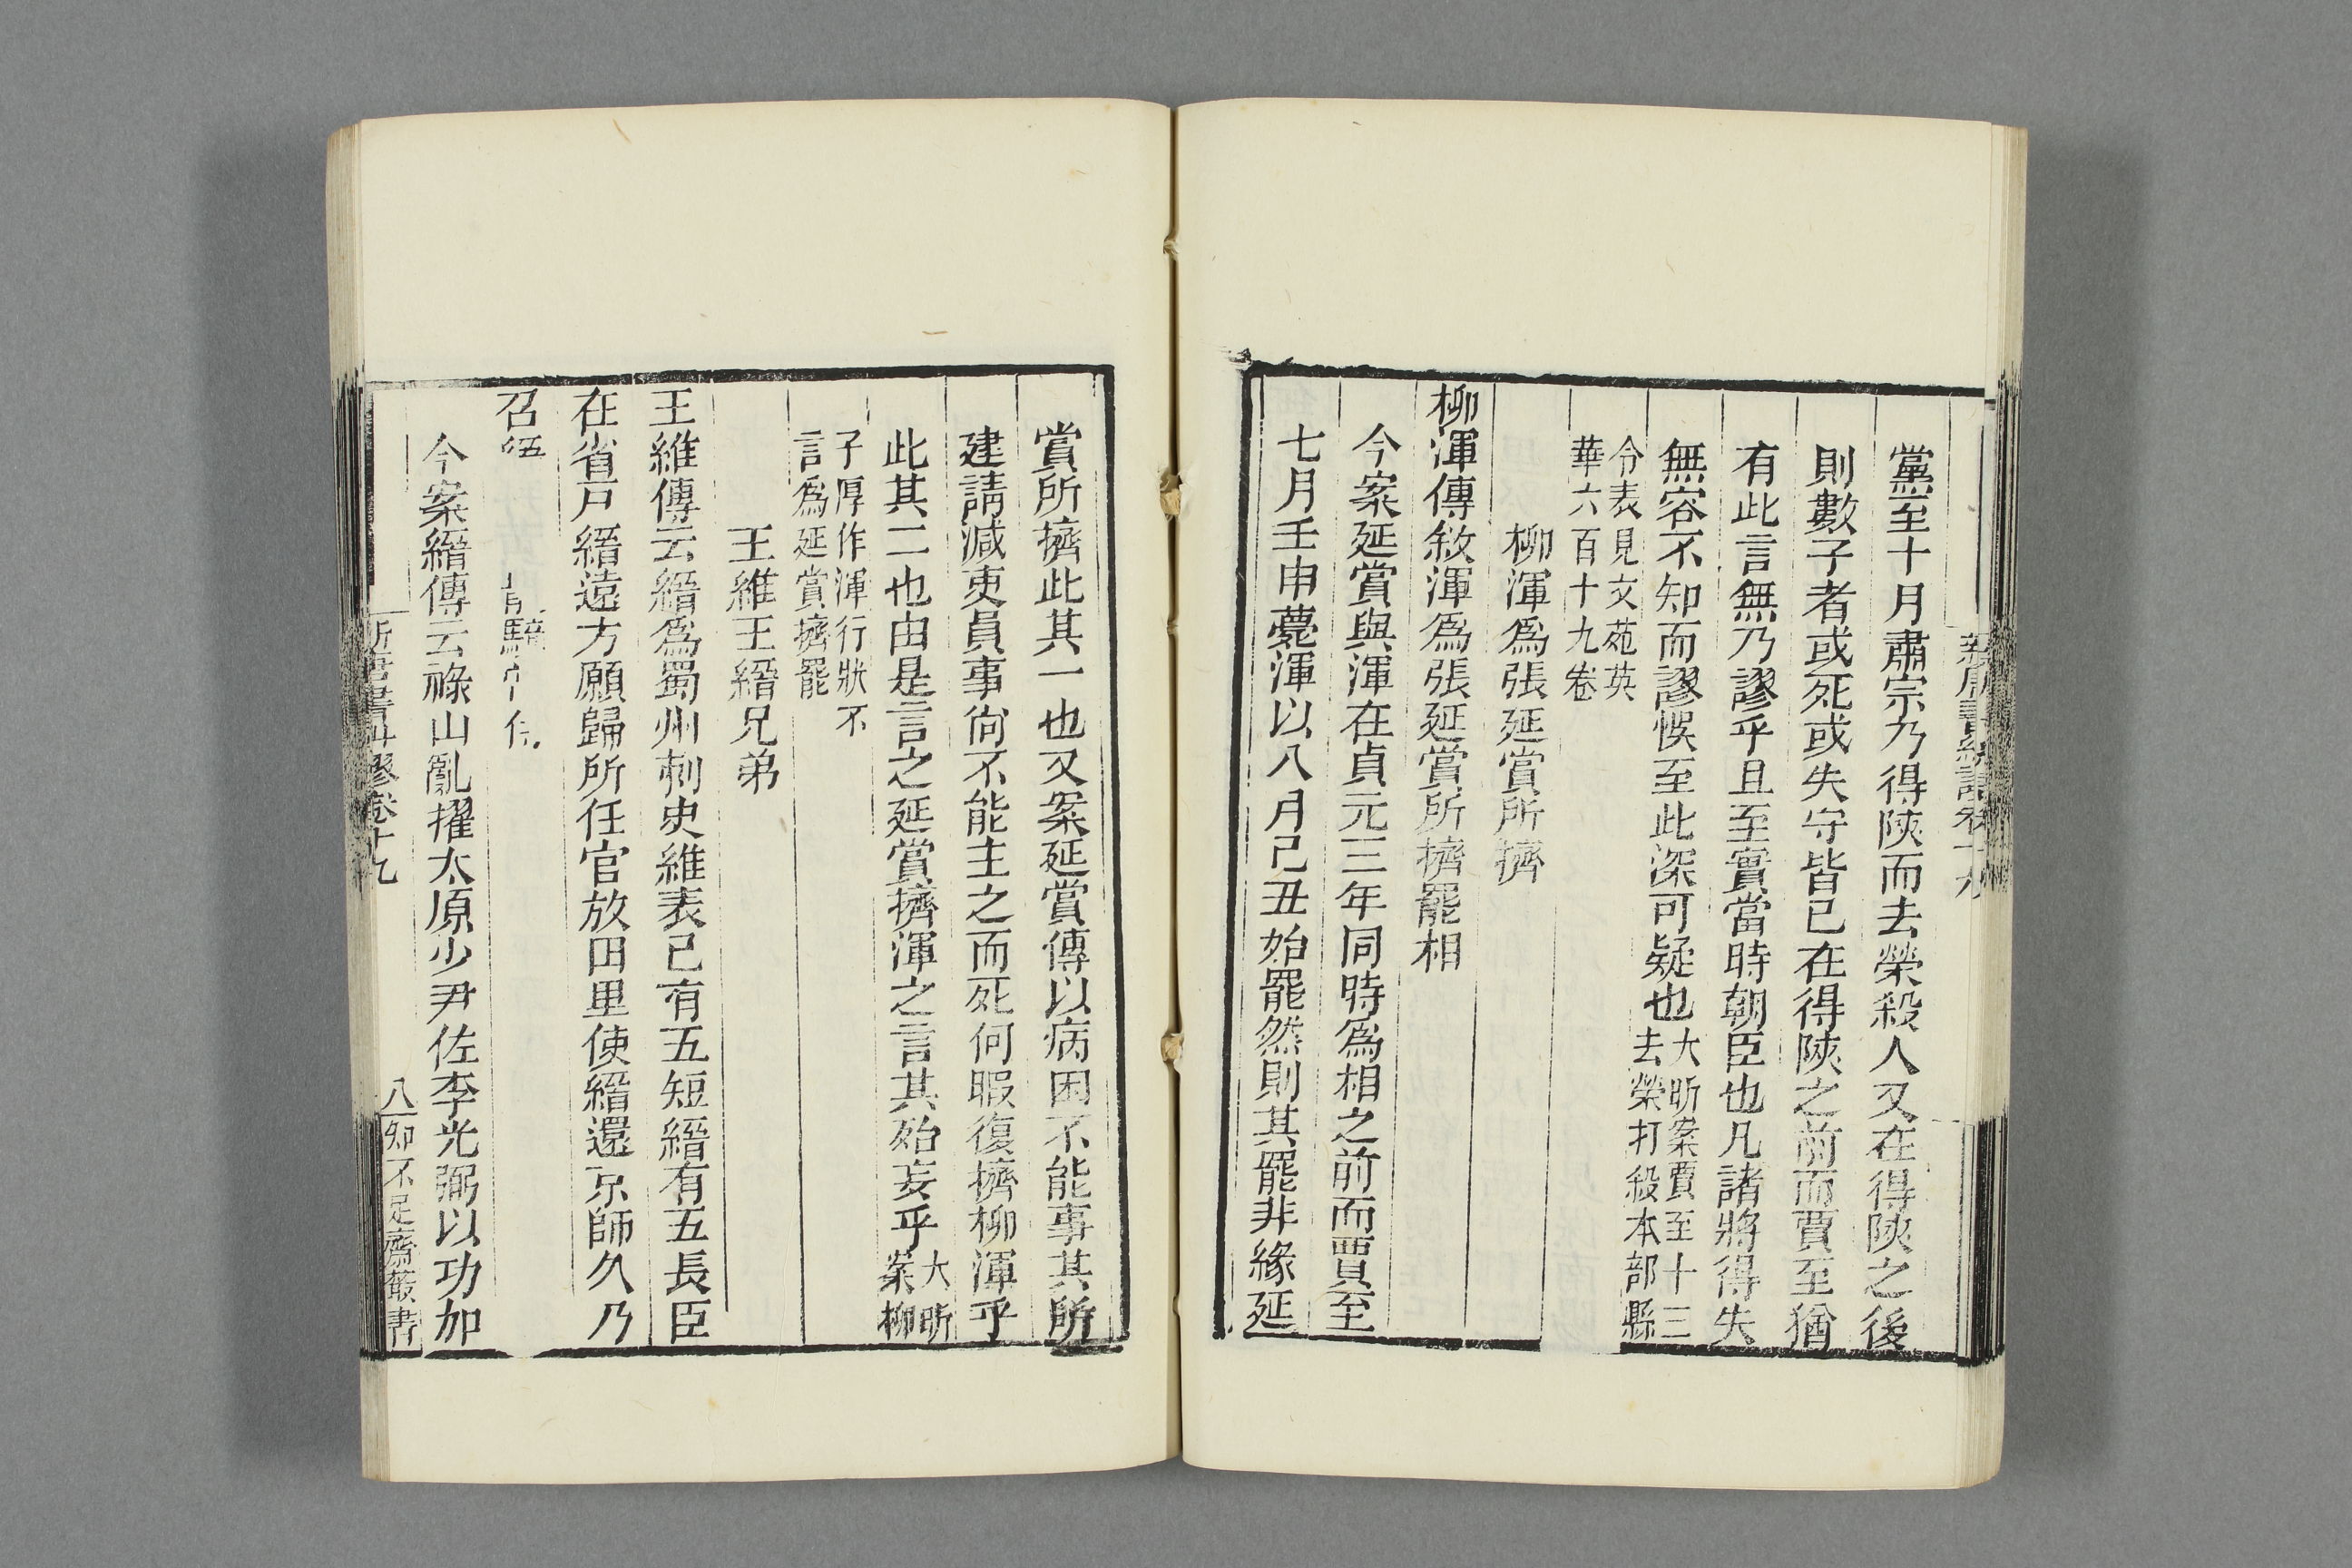 黨至十月肅宗乃得陝而去榮殺人又在得陝之後
則數子者或死或失守皆已在得陝之前而賈至猶
有此言無乃謬乎且至實當時朝臣也凡諸將得失
無容不知而謬悞至此深可疑也大昕案賈至十三
去榮打殺本部縣
令表見文苑英
華六百十九卷
柳渾爲張延賞所擠
柳渾傳敘渾爲張延賞所擠罷相
今案延賞與渾在貞元三年同時爲相之前而賈至
七月壬申薨渾以八月己丑始罷然則其罷非緣延
賞所擠此其一也又案延賞傳以病困不能事其所
建請減吏員事尚不能主之而死何暇復擠柳渾乎
此其二也由是言之延賞擠渾之言其殆妄乎大昕
案柳
子厚作渾行狀不
言爲延賞擠罷
王維王縉兄弟
王維傳云縉爲蜀州刺史維表己有五短縉有五長臣
在省戶縉遠方願歸所任官放田里使縉還京師久乃
召
今案縉傳云祿山亂擢太原少尹佐李光弼以功加
卷十九
八
知不足齋叢書